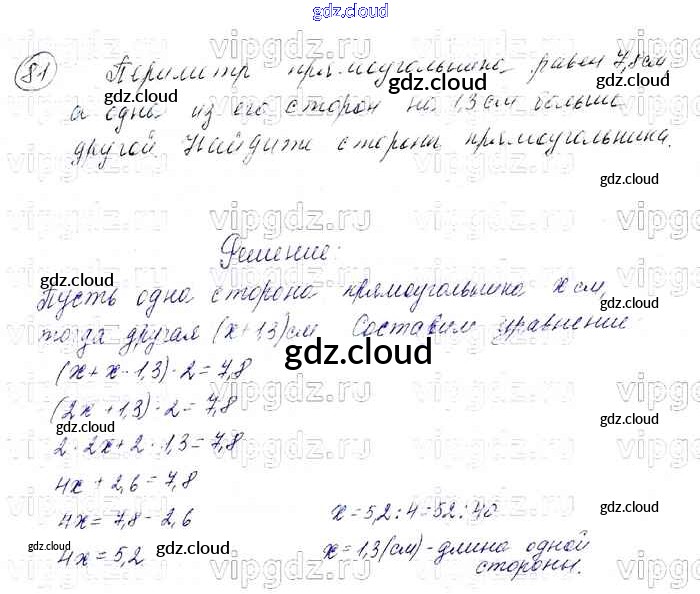 gdz.cloud
81 Периметр прямоугольника равен 7,8 см,
gdz.cloud gdz.cloud
а одна из его сторон на 1,3 см больше
другой. Найдите стороны прямоугольника.
gdz.cloud
vipgdz.ru vipgdz.ru vipgdz
Решение:
gdz.cloud
Пусть одна сторона прямоугольника x см,
gdz.cloud
тогда другая (x+1,3) см Составим уравнение:
gdz.cloud
(x + x + 1,3) · 2 = 7,8
(2x + 1,3) · 2 = 7,8
gdz.cloud
2 · 2x + 2 · 1,3 = 7,8
4x + 2,6 = 7,8
4x = 7,8 - 2,6 x = 5,2 : 4 = 52 : 40
gdz.cloud
gdz.cloud
4x = 5,2 x = 1,3 (см) - длина одной
стороны.
gdz.cloud